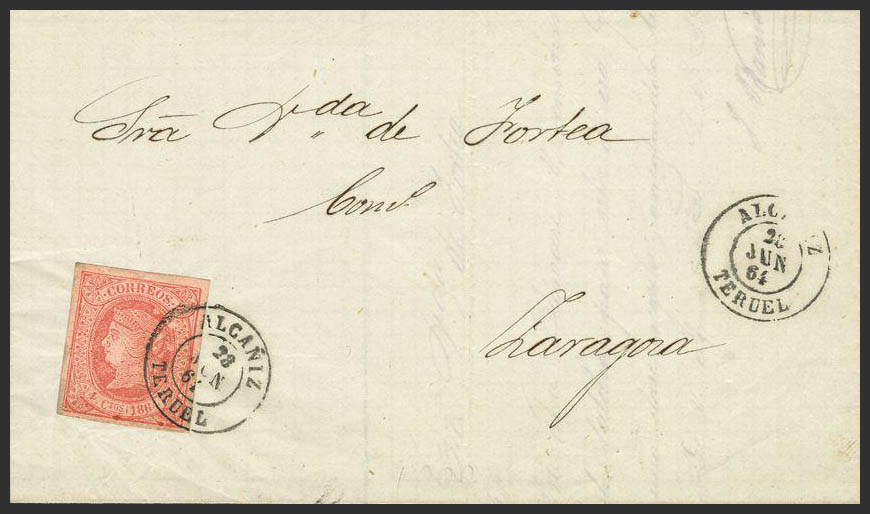 Srã V.da de Fortea
Com.
Zaragoza
CORREOS
4 Ctos 186
ALCAÑIZ
28
JUN
64
TERUEL
ALC Z
28
JUN
64
TERUEL